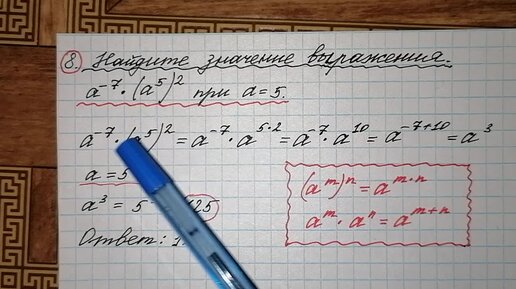 8. Найдите значение выражения.
a⁻⁷·(a⁵)² при a=5.
a⁻⁷·(a⁵)² = a⁻⁷·a⁵·² = a⁻⁷·a¹⁰ = a⁻⁷⁺¹⁰ = a³
a = 5
a³ = 5 125
Ответ: 1
(aᵐ)ⁿ = aᵐ·ⁿ
aᵐ·aⁿ = aᵐ⁺ⁿ